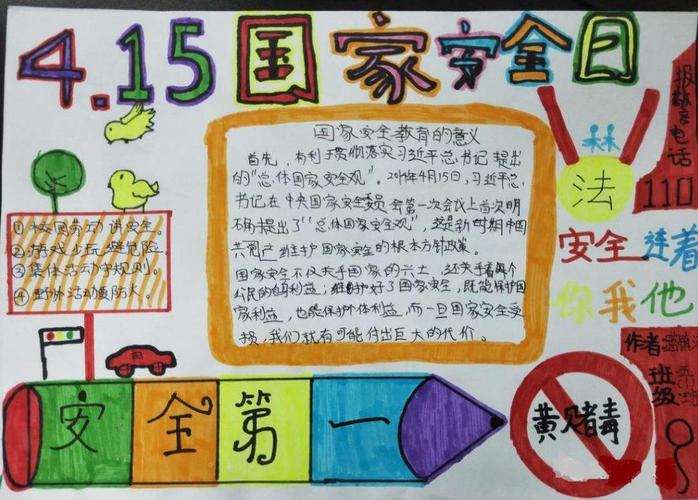 4.15国家安全日
国家安全教育的意义
首先,有利于贯彻落实习近平总书记提出
的“总体国家安全观”。2014年4月15日,习近平总
书记在中央国家安全委员会第一次会议上首次明
确提出了“总体国家安全观”,这是新时期中国
共产维护国家安全的根本方针政策。
国家安全不仅关乎国家的,还关乎着每个
公民的自身利益;维护好了国家安全,既能保护国
家利益,也能保护体利益,而一旦国家安全受
损,我们就有可能付出巨大的代价。
①校园劳动讲安全。
②游戏少玩避危险。
③集体活动守规则。
④野外活动要防火。
报警电话
110
法
安全连着
你我他
作者:
班级
安全第一
黄赌毒